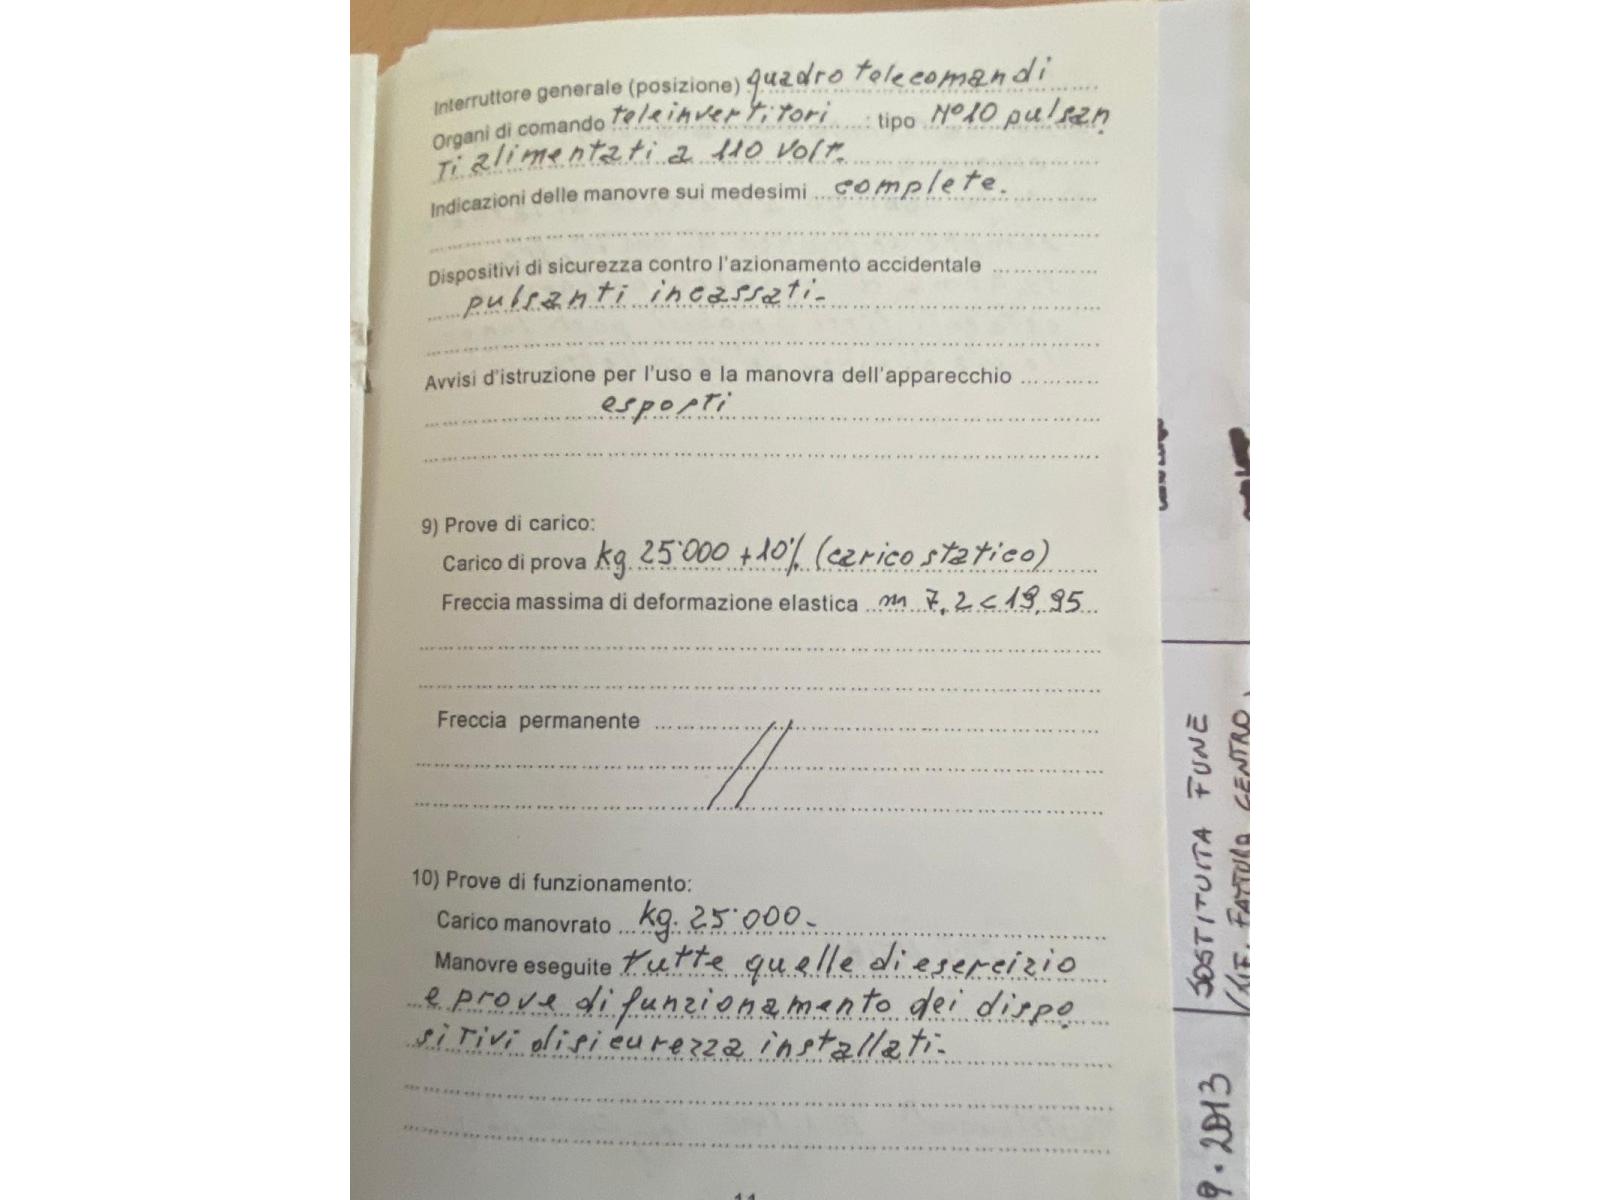 Interruttore generale (posizione) quadro telecomandi
Organi di comando teleinvertitori : tipo N°10 pulsan
ti alimentati a 110 Volt.
Indicazioni delle manovre sui medesimi complete.
Dispositivi di sicurezza contro l'azionamento accidentale
pulsanti incassati-
Avvisi d'istruzione per l'uso e la manovra dell'apparecchio
esposti
9) Prove di carico:
Carico di prova kg 25'000 +10% (carico statico)
Freccia massima di deformazione elastica m 7,2 < 19,95
Freccia permanente
10) Prove di funzionamento:
Carico manovrato kg. 25'000-
Manovre eseguite tutte quelle di esercizio
e prove di funzionamento dei dispo
sitivi di sicurezza installati-
11
SOSTITUITA FUNE
(RIF. FATTURA CENTRO
9.2013